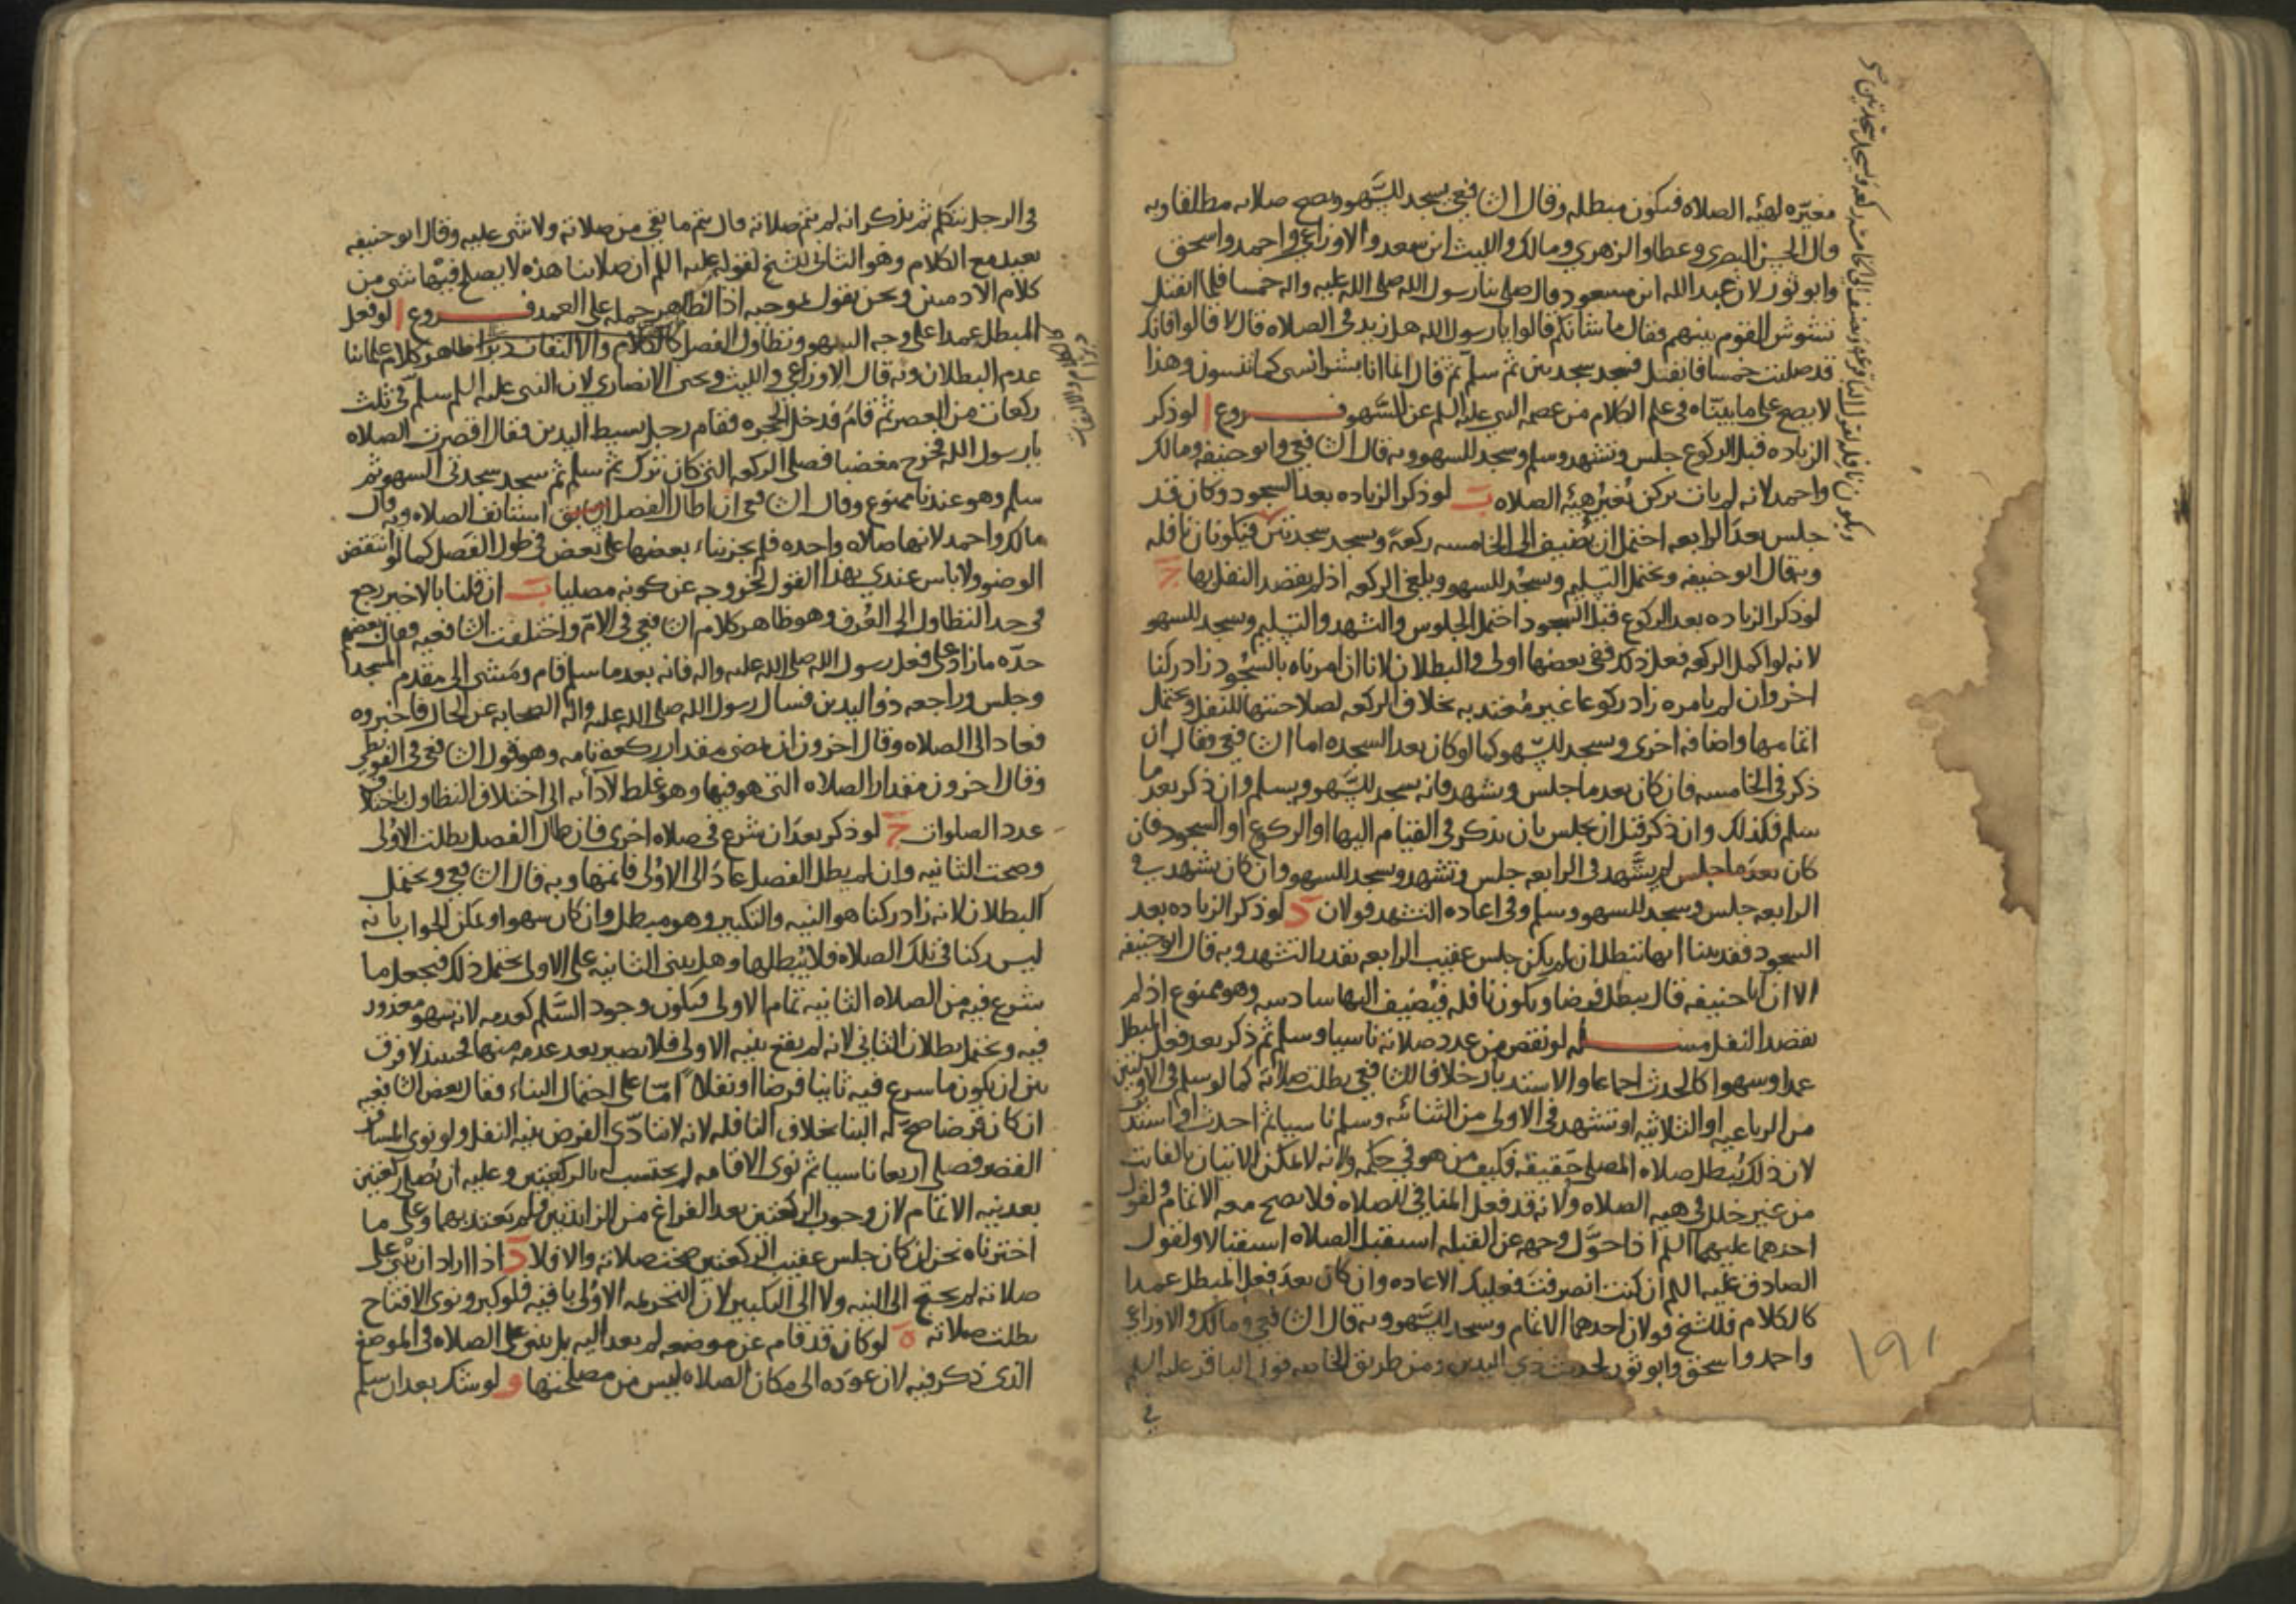 مغيره لهيه الصلاه فيكون مبطله وقال الشافعي يسجد للسهو وتصح صلاته مطلقا وبه
قال الحسن البصري وعطا والزهري ومالك والليث ابن سعد والاوزاعي واحمد واسحق
وابو ثور لان عبد الله ابن مسعود قال صلى بنا رسول الله صلى الله عليه واله خمسا فلما انفتل
تشوش القوم بينهم فقال ما شانكم قالوا يا رسول الله هل زيد في الصلاه قال لا قالوا فانك
قد صليت خمسا فانفتل فسجد سجدتين ثم سلم ثم قال انما انا بشر انسى كما تنسون وهذا
لا يصح على ما بيناه في علم الكلام من عصمه النبي عليه السلم عن السهو فروع ا لو ذكر
الزياده قبل الركوع جلس وتشهد وسلم وسجد للسهو وبه قال الشافعي وابو حنيفه ومالك
واحمد لانه لم يات بركن يغير هيئه الصلاه ب لو ذكر الزياده بعد السجود وكان قد
جلس بعد الرابعه احتمل ان يضيف الى الخامسه ركعة ويسجد سجدتين فيكونان نافله
وبه قال ابو حنيفه ويحتمل التسليم ويسجد للسهو ويلغي الركعه اذ لم يقصد النفل بها ج
لو ذكر الزياده بعد الركوع قبل السجود احتمل الجلوس والتشهد والتسليم وسجد للسهو
لانه لو اكمل الركعه فعل ذلك ففي بعضها اولى والبطلان لانا ان امرناه بالسجود زاد ركنا
اخر وان لم نامره زاد ركوعا غير متعبد به بخلاف الركعه لصلاحيتها للنفل ويحتمل
اتمامها واضافه اخرى ويسجد للسهو كما لو كان بعد السجده اما الشافعي فقال ان
ذكر في الخامسه فان كان بعد ما جلس وتشهد فانه يسجد للسهو ويسلم وان ذكر بعد ما
سلم فكذلك وان ذكر قبل ان يجلس بان يذكر في القيام اليها او الركوع او السجود فان
كان بعد ما جلس لم يتشهد في الرابعه جلس وتشهد وسجد للسهو وان كان تشهد في
الرابعه جلس وسجد للسهو وسلم وفي اعاده التشهد قولان د لو ذكر الزياده بعد
السجود فقد بينا انها تبطل ان لم يكن جلس عقيب الرابعه بقدر التشهد وبه قال ابو حنيفه
الا ان ابا حنيفه قال يبطل فرضا ويكون نافله فيضيف اليها سادسه وهو ممنوع اذ لم
يقصد النفل مسئله لو نقص من عدد صلاته ناسيا وسلم ثم ذكر بعد فعل المبطل
عمدا وسهوا كالحدث اجماعا والاستدبار خلافا للشافعي بطلت صلاته كما لو سلم في الاوليين
من الرباعيه او الثلاثيه او تشهد في الاولى من الثنائيه وسلم ناسيا ثم احدث او استدبر
لان ذلك يبطل صلاه المصلي حقيقه فكيف من هو في حكمه ولانه لا يمكن الاتيان بالفائت
من غير خلل في هيه الصلاه ولانه قد فعل المنافي للصلاه فلا يصح معه الاتمام ولقول
احدهما عليهما السلم اذا حول وجهه عن القبله استقبل الصلاه استقبالا ولقول
الصادق عليه السلم ان كنت انصرفت فعليك الاعاده وان كان بعد فعل المبطل عمدا
كالكلام فللشيخ قولان احدهما الاتمام وسجد للسهو وبه قال الشافعي ومالك والاوزاعي
واحمد واسحق وابو ثور لحديث ذي اليدين ومن طريق الخاصه قول الباقر عليه السلم
في
١٩١
في الرجل يتكلم ثم يذكر انه لم يتم صلاته قال يتم ما بقي من صلاته ولا شي عليه وقال ابو حنيفه
يعيد مع الكلام وهو الثاني للشيخ لقوله عليه السلم ان صلاتنا هذه لا يصلح فيها شي من
كلام الادميين ونحن نقول بموجبه اذ الظاهر حمله على العمد فروع ا لو فعل
المبطل عمدا على وجه السهو وتطاول الفصل كالكلام والالتفات ظاهر كلام علمائنا
عدم البطلان وبه قال الاوزاعي والليث ويحيى الانصاري لان النبي عليه السلم سلم في ثلث
ركعات من العصر ثم قام فدخل الحجره فقام رجل بسيط اليدين فقال اقصرت الصلاه
يا رسول الله فخرج مغضبا فصلى الركعه التي كان ترك ثم سلم ثم سجد سجدتي السهو ثم
سلم وهو عندنا ممنوع وقال الشافعي ان طال الفصل استانف الصلاه وبه قال
مالك واحمد لانها صلاه واحده فلم يجز بناء بعضها على بعض في طول الفصل كما لو انتقض
الوضو ولا باس عندي بهذا القول لخروجه عن كونه مصليا ب ان قلنا بالاخير رجع
في حد التطاول الى العرف وهو ظاهر كلام الشافعي في الام واختلفت الشافعيه فقال بعضهم
حده ما زاد على فعل رسول الله صلى الله عليه واله فانه بعد ما سلم قام ومشى الى مقدم المسجد
وجلس وراجعه ذو اليدين فسال رسول الله صلى الله عليه واله الصحابه عن الحال فاخبروه
فعاد الى الصلاه وقال اخرون ان مضى مقدار ركعة تامه وهو قول الشافعي في البويطي
وقال اخرون مقدار الصلاه التي هو فيها وهو غلط لادائه الى اختلاف التطاول باختلاف
عدد الصلوات ج لو ذكر بعد ان شرع في صلاه اخرى فان طال الفصل بطلت الاولى
وصحت الثانيه وان لم يطل الفصل عاد الى الاولى فاتمها وبه قال الشافعي ويحتمل
البطلان لانه زاد ركنا هو النيه والتكبير وهو مبطل وان كان سهوا ويمكن الجواب بانه
ليس ركنا في تلك الصلاه فلا يبطلها وهل يبنى الثانيه على الاولى يحتمل ذلك فيجعل ما
شرع فيه من الصلاه الثانيه تمام الاولى فيكون وجود السلم كعدمه لانه سهو معذور
فيه ويحتمل بطلان الثاني لانه لم يقع بنيه الاولى فلا يصير بعد عدمه منها فحينئذ لا فرق
بين ان يكون ما شرع فيه ثانيا فرضا او نفلا اما على احتمال البناء فقال بعض الشافعيه
ان كان فرضا صح له البنا بخلاف النافله لانه لا يتادى الفرض بنيه النفل ولو نوى المسافر
القصر فصلى اربعا ناسيا ثم نوى الاقامه لم يحتسب بالركعتين وعليه ان يصلي ركعتين
بعد نيه الاتمام لان وجوب الركعتين بعد الفراغ من الزائدتين فلم يعتد بهما وعلى ما
اخترناه نحن ان كان جلس عقيب الركعتين صحت صلاته والا فلا د اذا اراد ان يبني على
صلاته لم يحتج الى النيه ولا الى التكبير لان التحريمه الاولى باقيه فلو كبر ونوى الافتتاح
بطلت صلاته ه لو كان قد قام عن موضعه لم يعد اليه بل يبني على الصلاه في الموضع
الذي ذكر فيه لان عوده الى مكان الصلاه ليس من مصلحتها و لو شك بعد ان سلم